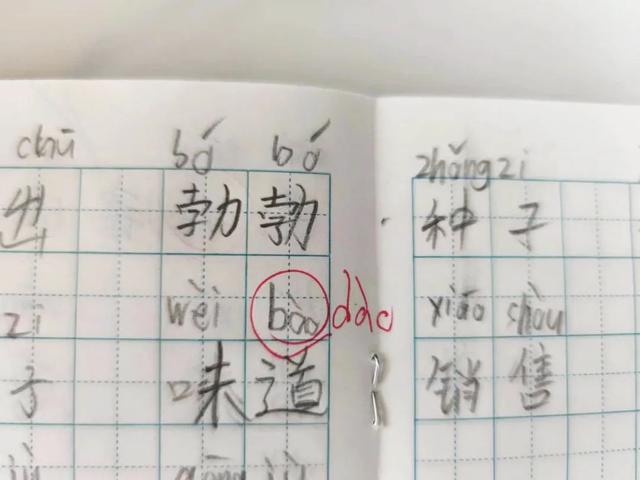 chū bó bó
出 勃 勃
zi wèi bào dào
子 味 道
zhǒng zi
种 子
xiāo shòu
销 售